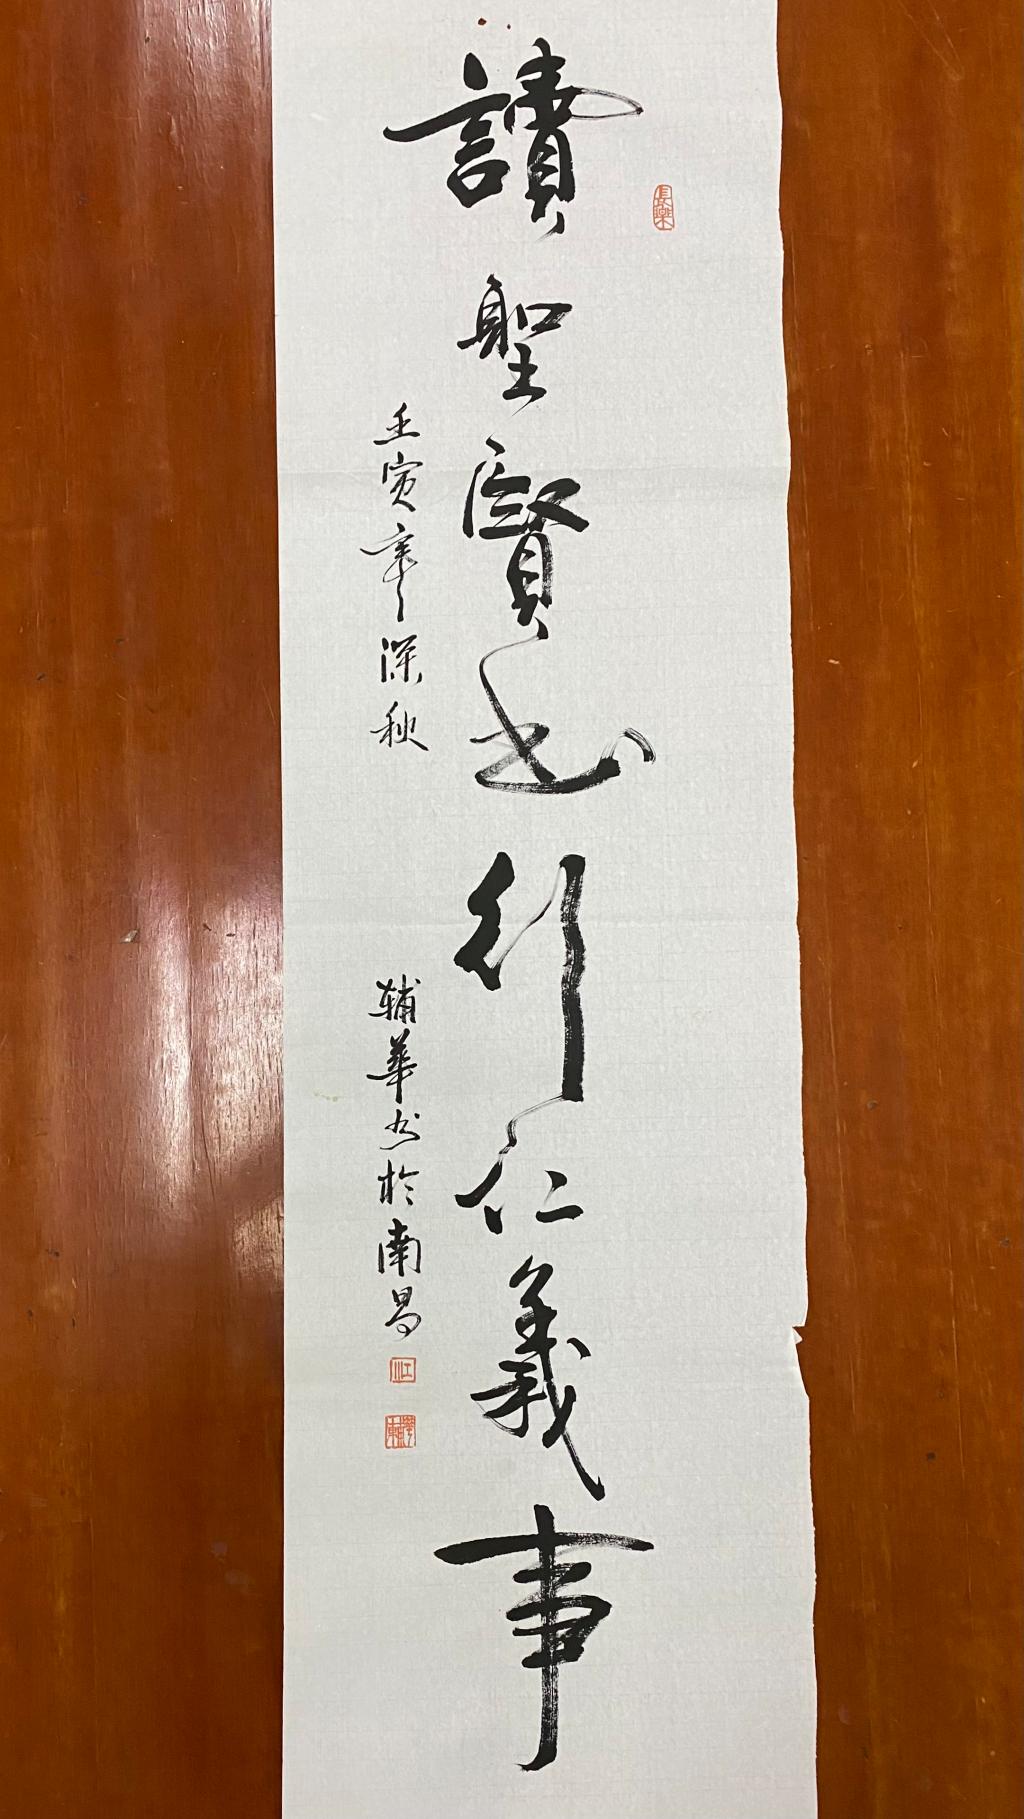 讀聖賢书行仁義事
壬寅年深秋
輔華书於南昌
長樂